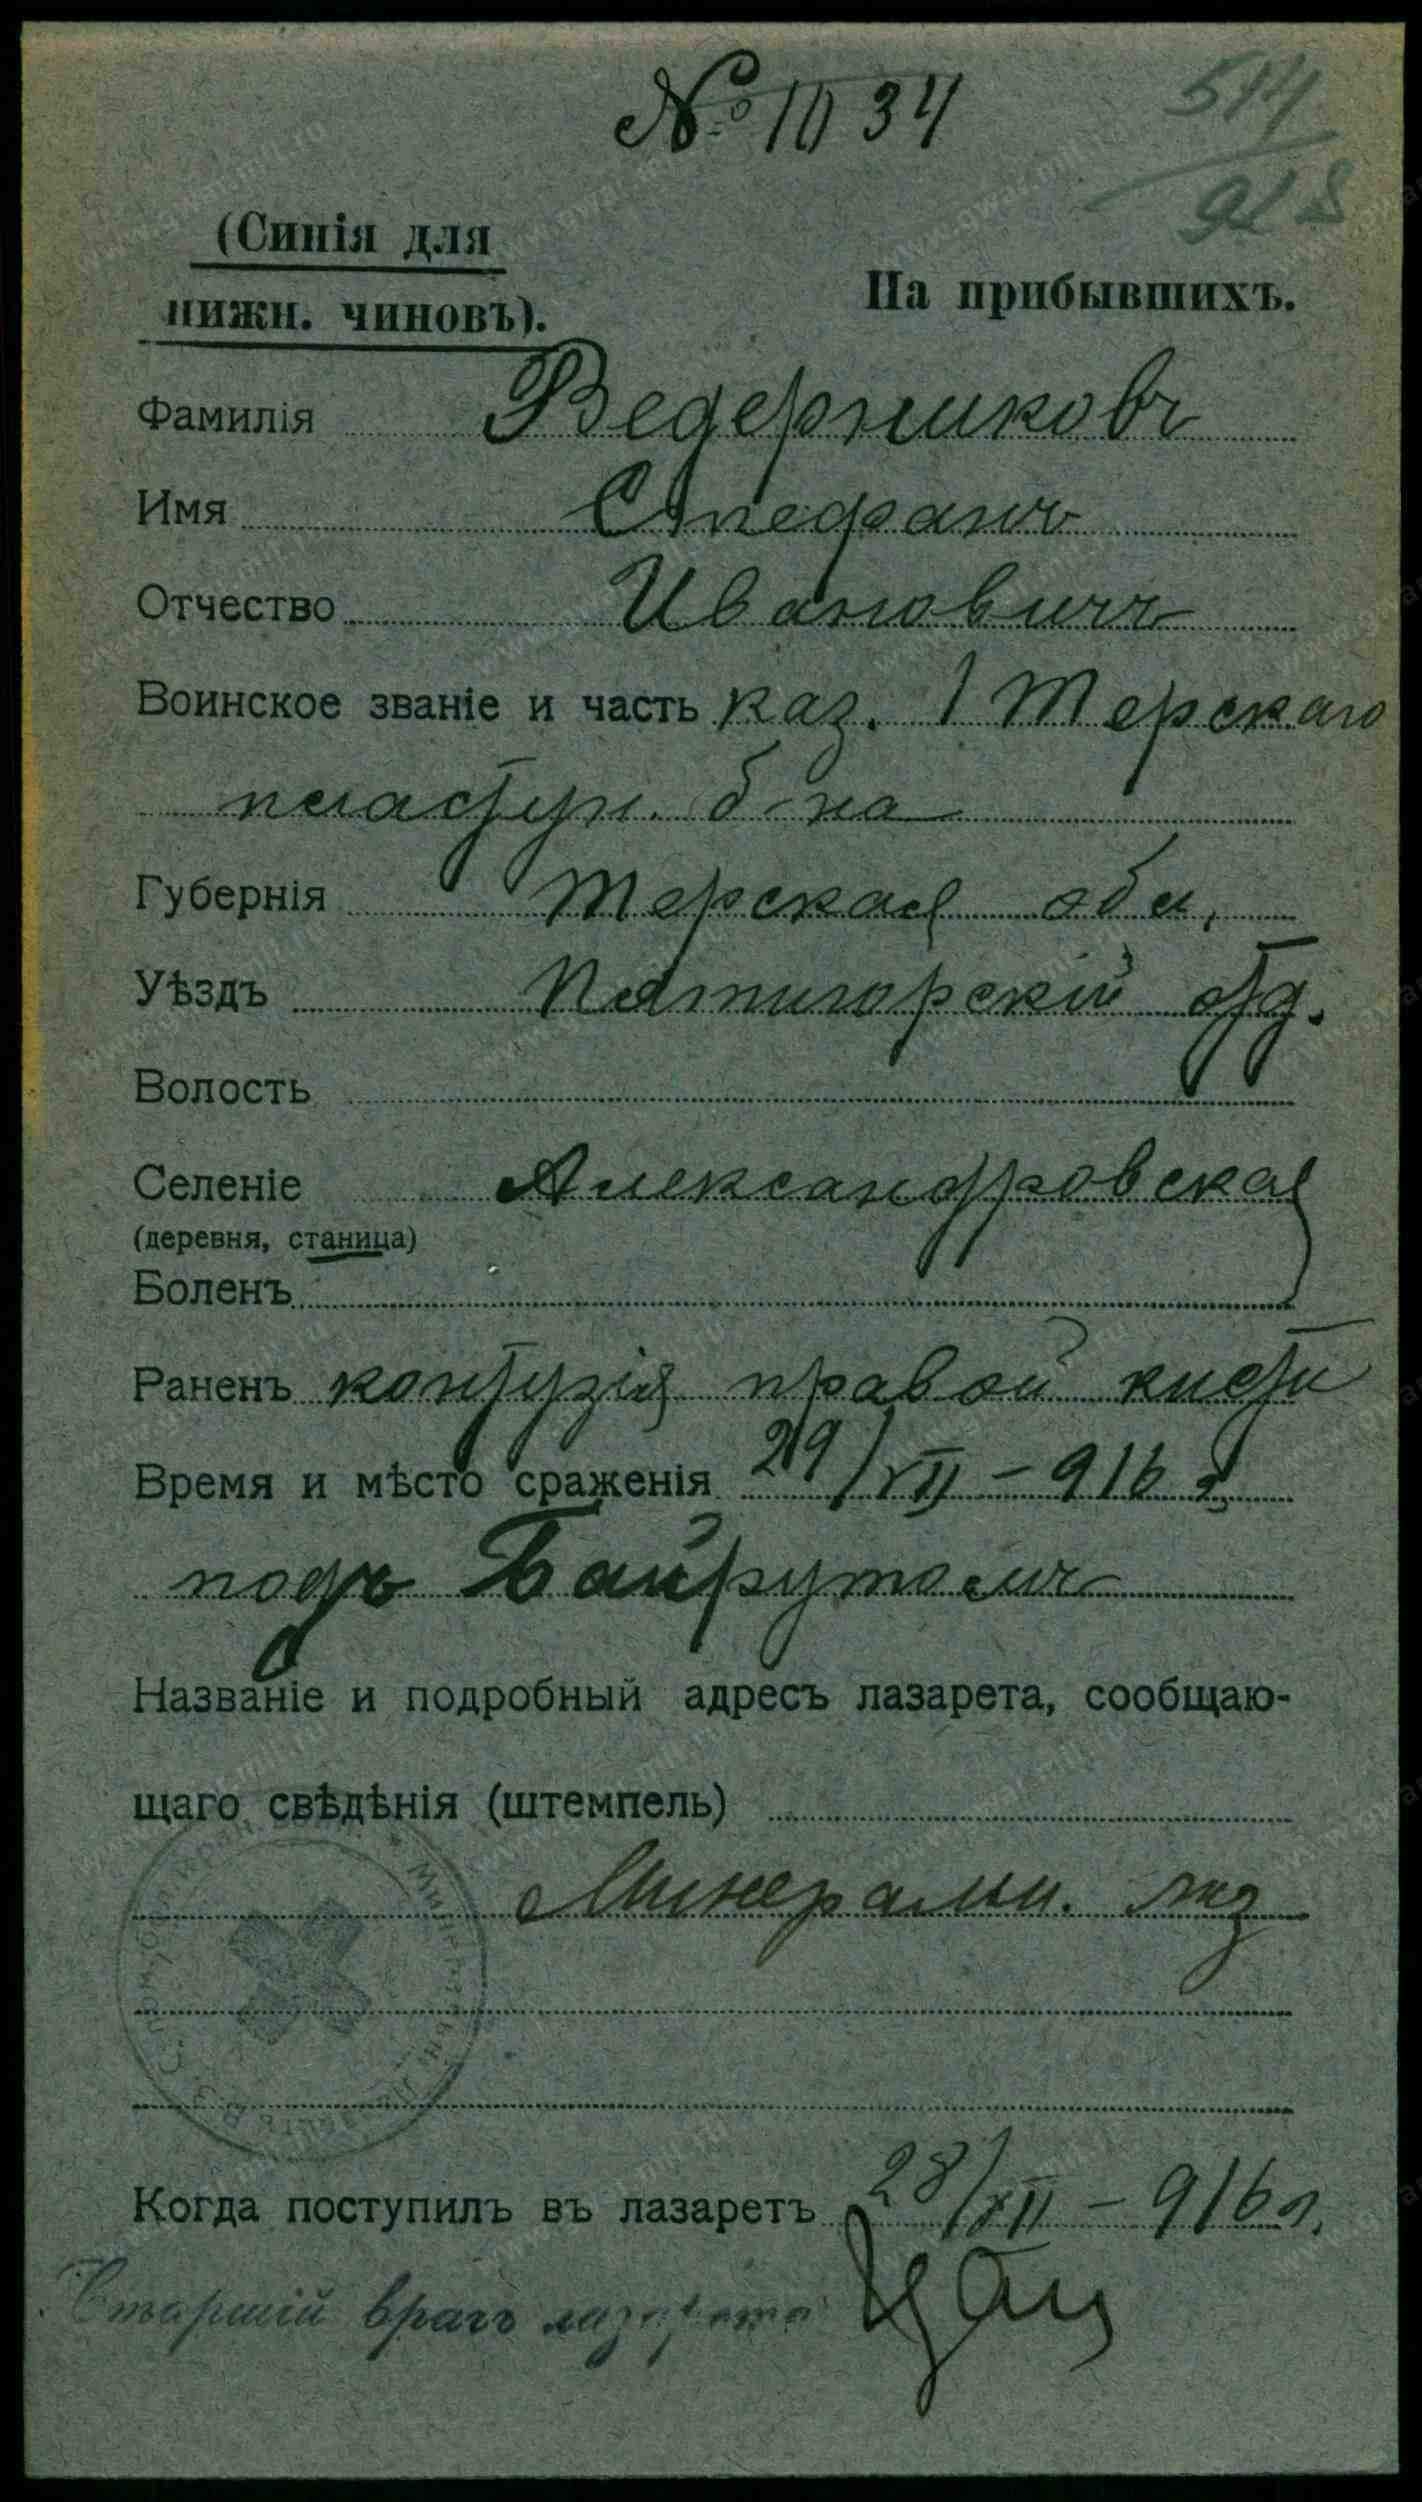 № 1034
544
918
(Синія для
нижн. чиновъ).
На прибывшихъ.
Фамилія Ведерниковъ
Имя Стефанъ
Отчество Ивановичъ
Воинское званіе и часть каз. 1 Терскаго
пластун. б-на
Губернія Терская обл.
Уѣздъ Пятигорскій отд.
Волость
Селеніе Александровская
(деревня, станица)
Боленъ
Раненъ контузія правой кисти
Время и мѣсто сраженія 29/XII - 916 г.
подъ Байрутомъ
Названіе и подробный адресъ лазарета, сообщаю-
щаго свѣдѣнія (штемпель)
Минеральн. лаз
Когда поступилъ въ лазаретъ 28/XII - 916 г.
Старшій врачъ лазарета